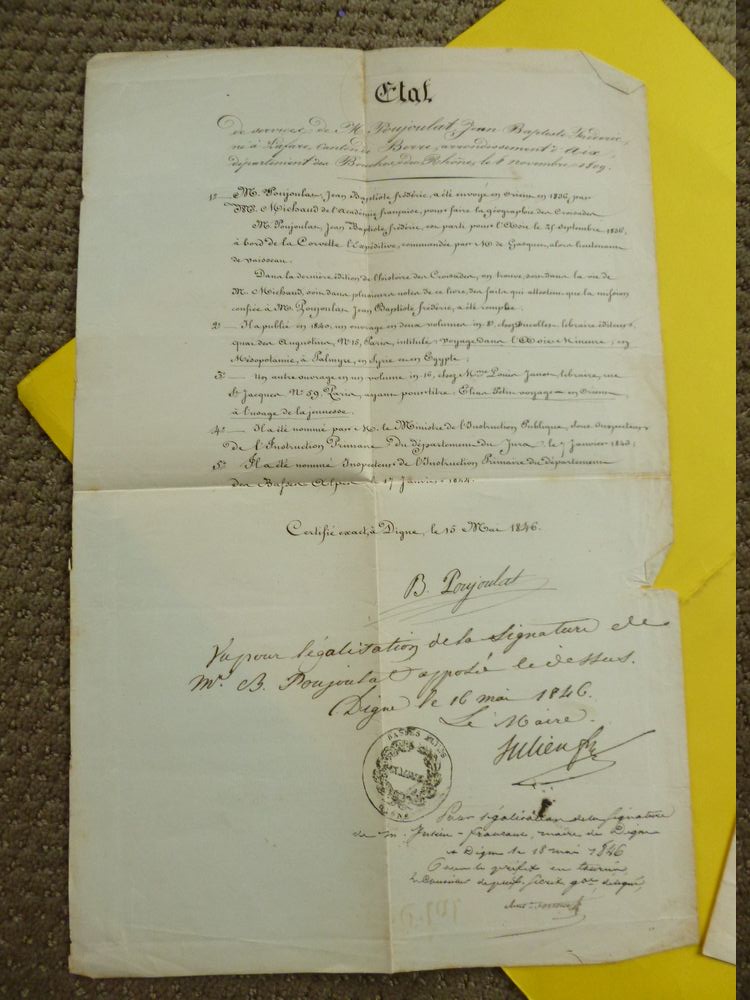 Etat
De services de M. Poujoulat, Jean Baptiste Frédéric,
né à Lafare, Canton de Berre, arrondissement d'Aix,
département des Bouches du Rhône, le novembre 1809.
1º — M. Poujoulat, Jean Baptiste frédéric, a été envoyé en Orient en 1836, par
M. Michaud de l'Académie française, pour faire la géographie des Croisades
M. Poujoulat, Jean Baptiste frédéric, est parti pour l'Asie le 25 septembre 1836
à bord de la Corvette l'Expéditive, commandée par M. de Gasquet, alors lieutenant
de vaisseau.
Dans la dernière édition de l'histoire des Croisades, on trouve, soit dans la vie de
M. Michaud, soit dans plusieurs notes de ce livre, des faits qui attestent que la mission
confiée à M. Poujoulat Jean Baptiste frédéric, a été remplie.
2º — Il a publié en 1840, un ouvrage en deux volumes in 8º chez Ducollet libraire éditeur,
quai des Augustins, Nº 15, Paris, intitulé: Voyage dans l'Asie Mineure, en
Mésopotamie, à Palmyre, en Syrie et en Egypte;
3º — Un autre ouvrage en un volume in 16, chez Mme Louis Janet, libraire, rue
St Jacques Nº 59, Paris, ayant pour titre: voyage en Orient
à l'usage de la jeunesse.
4º — Il a été nommé par M. le Ministre de l'Instruction Publique, Sous-Inspecteur
de l'Instruction Primaire du département du Jura le 7 janvier 1843;
5º Il a été nommé Inspecteur de l'Instruction Primaire du département
des Basses Alpes 17 Janvier 1844.
Certifié exact, à Digne, le 15 Mai 1846.
B. Poujoulat
Vu pour légalisation de la signature de
Mr. B. Poujoulat apposée ci dessus.
Digne le 16 mai 1846.
Le Maire.
Julien
BASSES ALPES
DIGNE
Pour légalisation de la signature
de m. Julien-francois, maire de Digne
à Digne le 18 mai 1846
Pour le préfet en tournée,